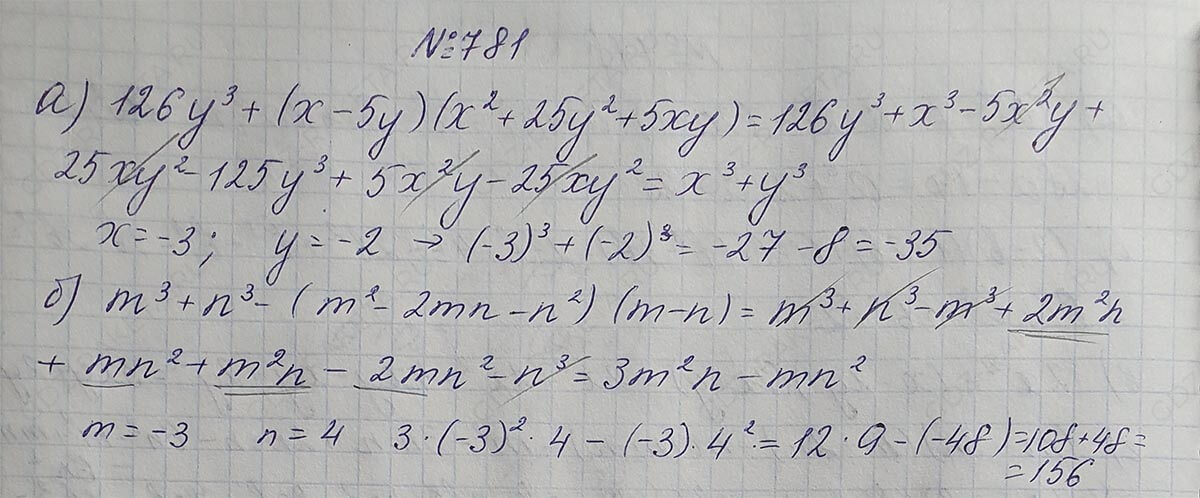 №781
а) 126y³ + (x - 5y)(x² + 25y² + 5xy) = 126y³ + x³ - 5x²y +
25xy² - 125y³ + 5x²y - 25xy² = x³ + y³
x = -3; y = -2 → (-3)³ + (-2)³ = -27 - 8 = -35
б) m³ + n³ - (m² - 2mn - n²)(m - n) = m³ + n³ - m³ + 2m²n
+ mn² + m²n - 2mn² - n³ = 3m²n - mn²
m = -3 n = 4 3·(-3)²·4 - (-3)·4² = 12·9 - (-48) = 108 + 48 =
= 156